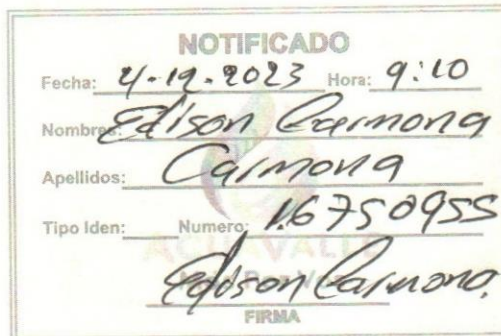 NOTIFICADO
Fecha: 4-12-2023 Hora: 9:10
Nombres: Edison Carmona
Apellidos: Carmona
Tipo Iden: Numero: 16750955
ACUAVALLE
Edison Carmona.
FIRMA